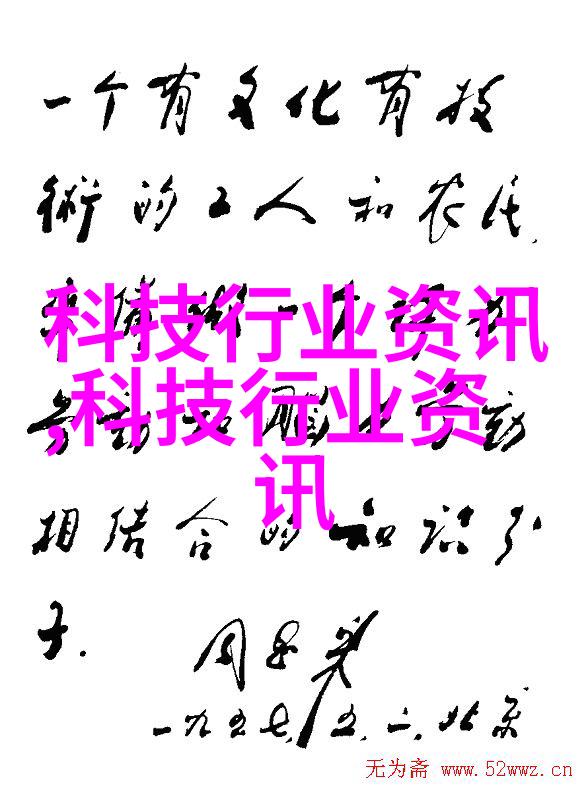 一个有文化有技
術的工人和农民,
科技行业资讯
科技行业资
讯
劳动和脑力劳动
相结合的知识分
子.
周恩来
一九五七,五,二,北京
无为斋 www.52wwz.cn